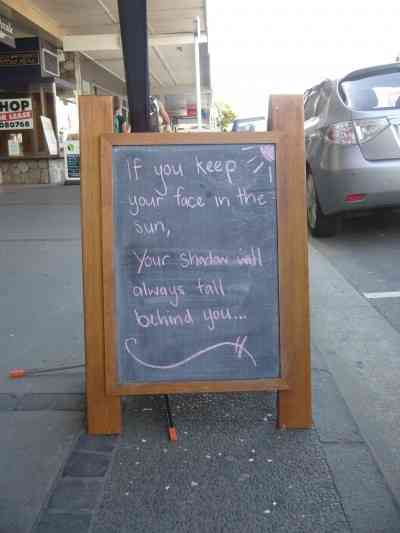 HOP
R LEASE
080768
If you keep
your face in the
sun,
Your shadow will
always fall
behind you...